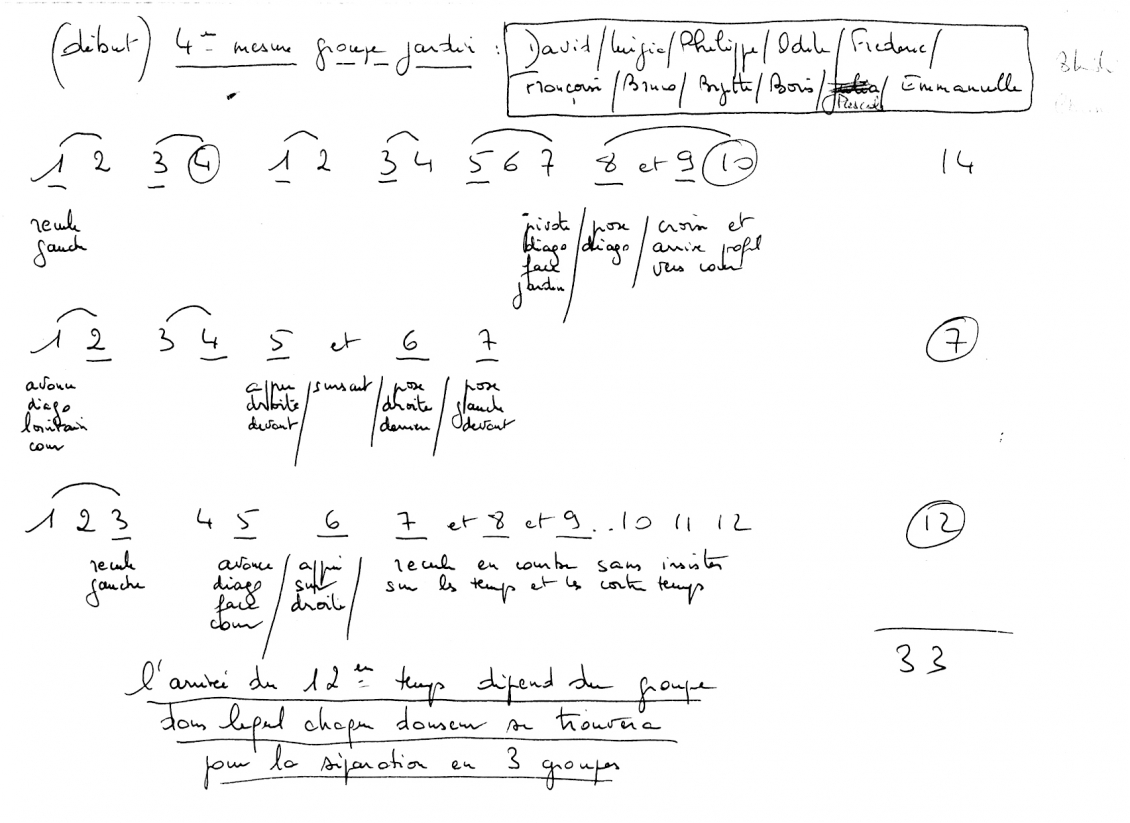 (début) 4ème mesure groupe jardin : David / Luigia / Philippe / Odile / Frederic /
François / Bruno / Brigitte / Boris / Pascal / Emmanuelle
1 2 3 4 1 2 3 4 5 6 7 8 et 9 10 14
recule
gauche
pivote / pose / croise et
diago / diago / arrive profil
face / vers cour
jardin
1 2 3 4 5 et 6 7 7
avance
diago
lointain
cour
appui / sursaut / pose / pose
droite / droite / gauche
devant / derrière / devant
1 2 3 4 5 6 7 et 8 et 9 .. 10 11 12 12
recule avance / appui / recule en courbe sans insister
gauche diago / sur / sur les temps et les contre temps
face / droite
cour
33
l'arrivée du 12ème temps dépend du groupe
dans lequel chaque danseur se trouvera
pour la séparation en 3 groupes